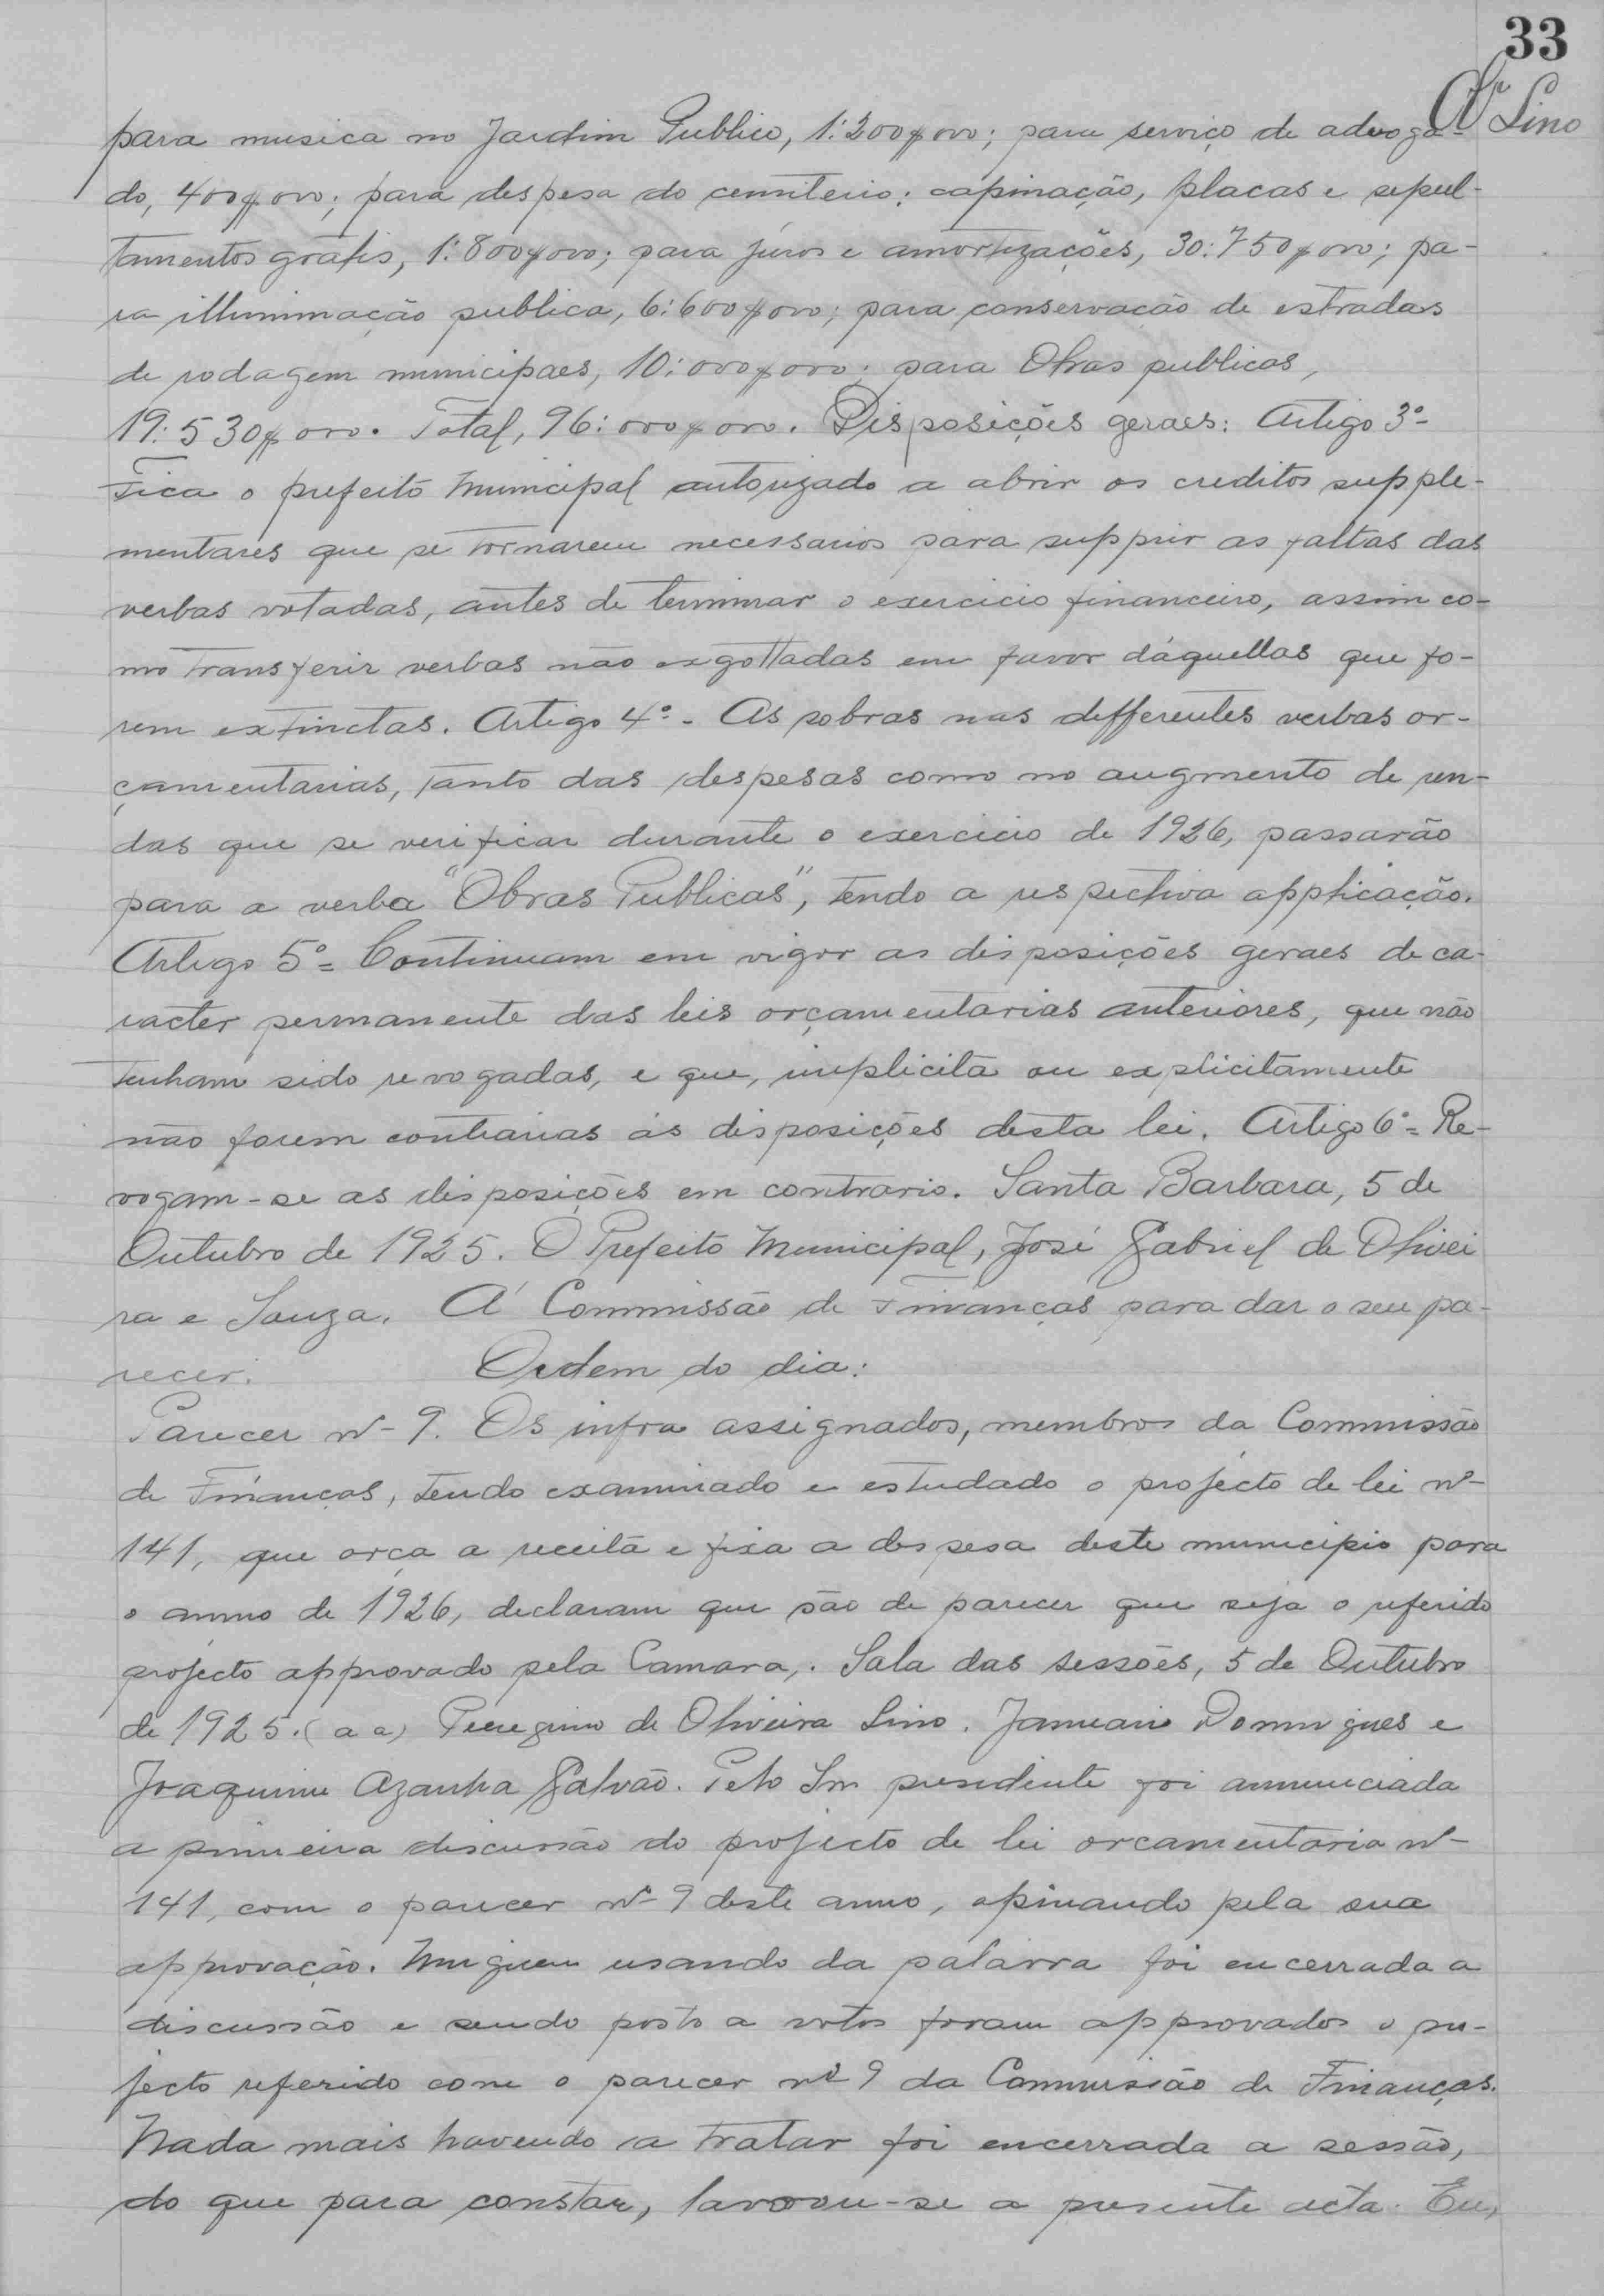 33
Lino
para musica no Jardim Publico, 1:200$000; para serviço de advoga-
do, 400$000; para despesa do cemiterio: capinação, placas e sepul-
tamentos gratis, 1:800$000; para juros e amortizações, 30:750$000; pa-
ra illuminação publica, 6:600$000; para conservação de estradas
de rodagem municipaes, 10:000$000; para Obras publicas,
19:530$000. Total, 96:000$000. Disposições geraes: Artigo 3º-
Fica o prefeito Municipal autorizado a abrir os creditos supple-
mentares que se tornarem necessarios para supprir as faltas das
verbas votadas, antes de terminar o exercicio financeiro, assim co-
mo transferir verbas não exgottadas em favor dáquellas que fo-
rem extinctas. Artigo 4º- As sobras nas differentes verbas or-
çamentarias, tanto das despesas como no augmento de ren-
das que se verificar durante o exercicio de 1926, passarão
para a verba "Obras Publicas", tendo a respectiva applicação.
Artigo 5º= Continuam em vigor as disposições geraes de ca-
racter permanente das leis orçamentarias anteriores, que não
tenham sido revogadas, e que, implicita ou explicitamente
não forem contrarias ás disposições desta lei. Artigo 6º= Re-
vogam-se as disposições em contrario. Santa Barbara, 5 de
Outubro de 1925. O Prefeito Municipal, José Gabriel de Olivei
ra e Souza. Á Commissão de Finanças para dar o seu pa-
recer. Ordem do dia:
Parecer nº 9. Os infra assignados, membros da Commissão
de Finanças, tendo examinado e estudado o projecto de lei nº
141, que orça a receita e fixa a despesa deste municipio para
o anno de 1926, declaram que são de parecer que seja o referido
projecto approvado pela Camara,. Sala das sessões, 5 de Outubro
de 1925. (a a) Peregrino de Oliveira Lino. Januario Domingues e
Joaquim Azanha Galvão. Pelo Snr presidente foi annunciada
a primeira discussão do projecto de lei orcamentaria nº
141, com o parecer nº 9 deste anno, opinando pela sua
approvação. Ninguem usando da palavra foi encerrada a
discussão e sendo posto a votos foram approvados o pro-
jecto referido com o parecer nº 9 da Commissão de Finanças.
Nada mais havendo a tratar foi encerrada a sessão,
do que para constar, lavrou-se a presente acta. Eu,